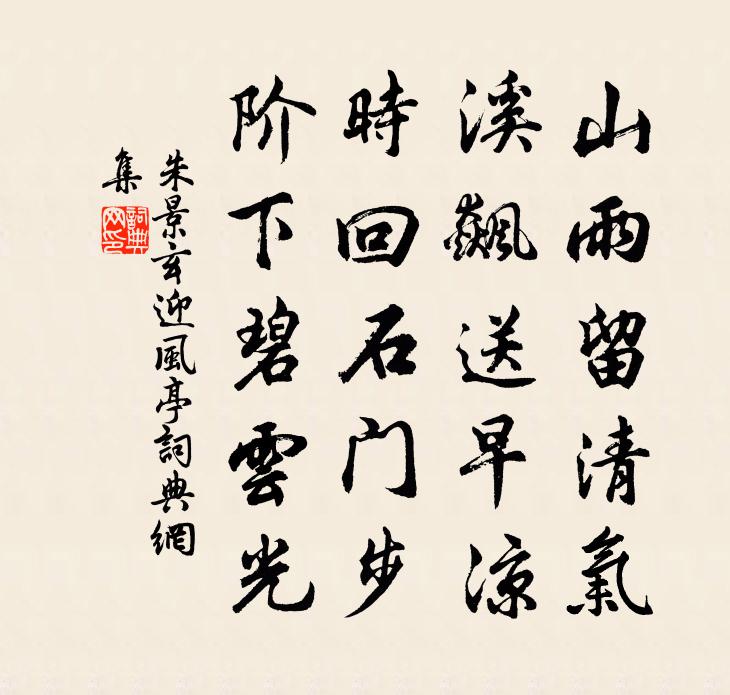 山雨留清氣
溪飆送早凉
時回石门步
阶下碧雲光
朱景玄迎風亭詞典網
集
詞典
网印